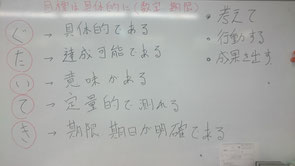 目標は具体的に(数字 期限)
ぐ → 具体的である
た → 達成可能である
い → 意味がある
て → 定量的で測れる
き → 期限 期日が明確である
・考えて
・行動する
・成果を出す